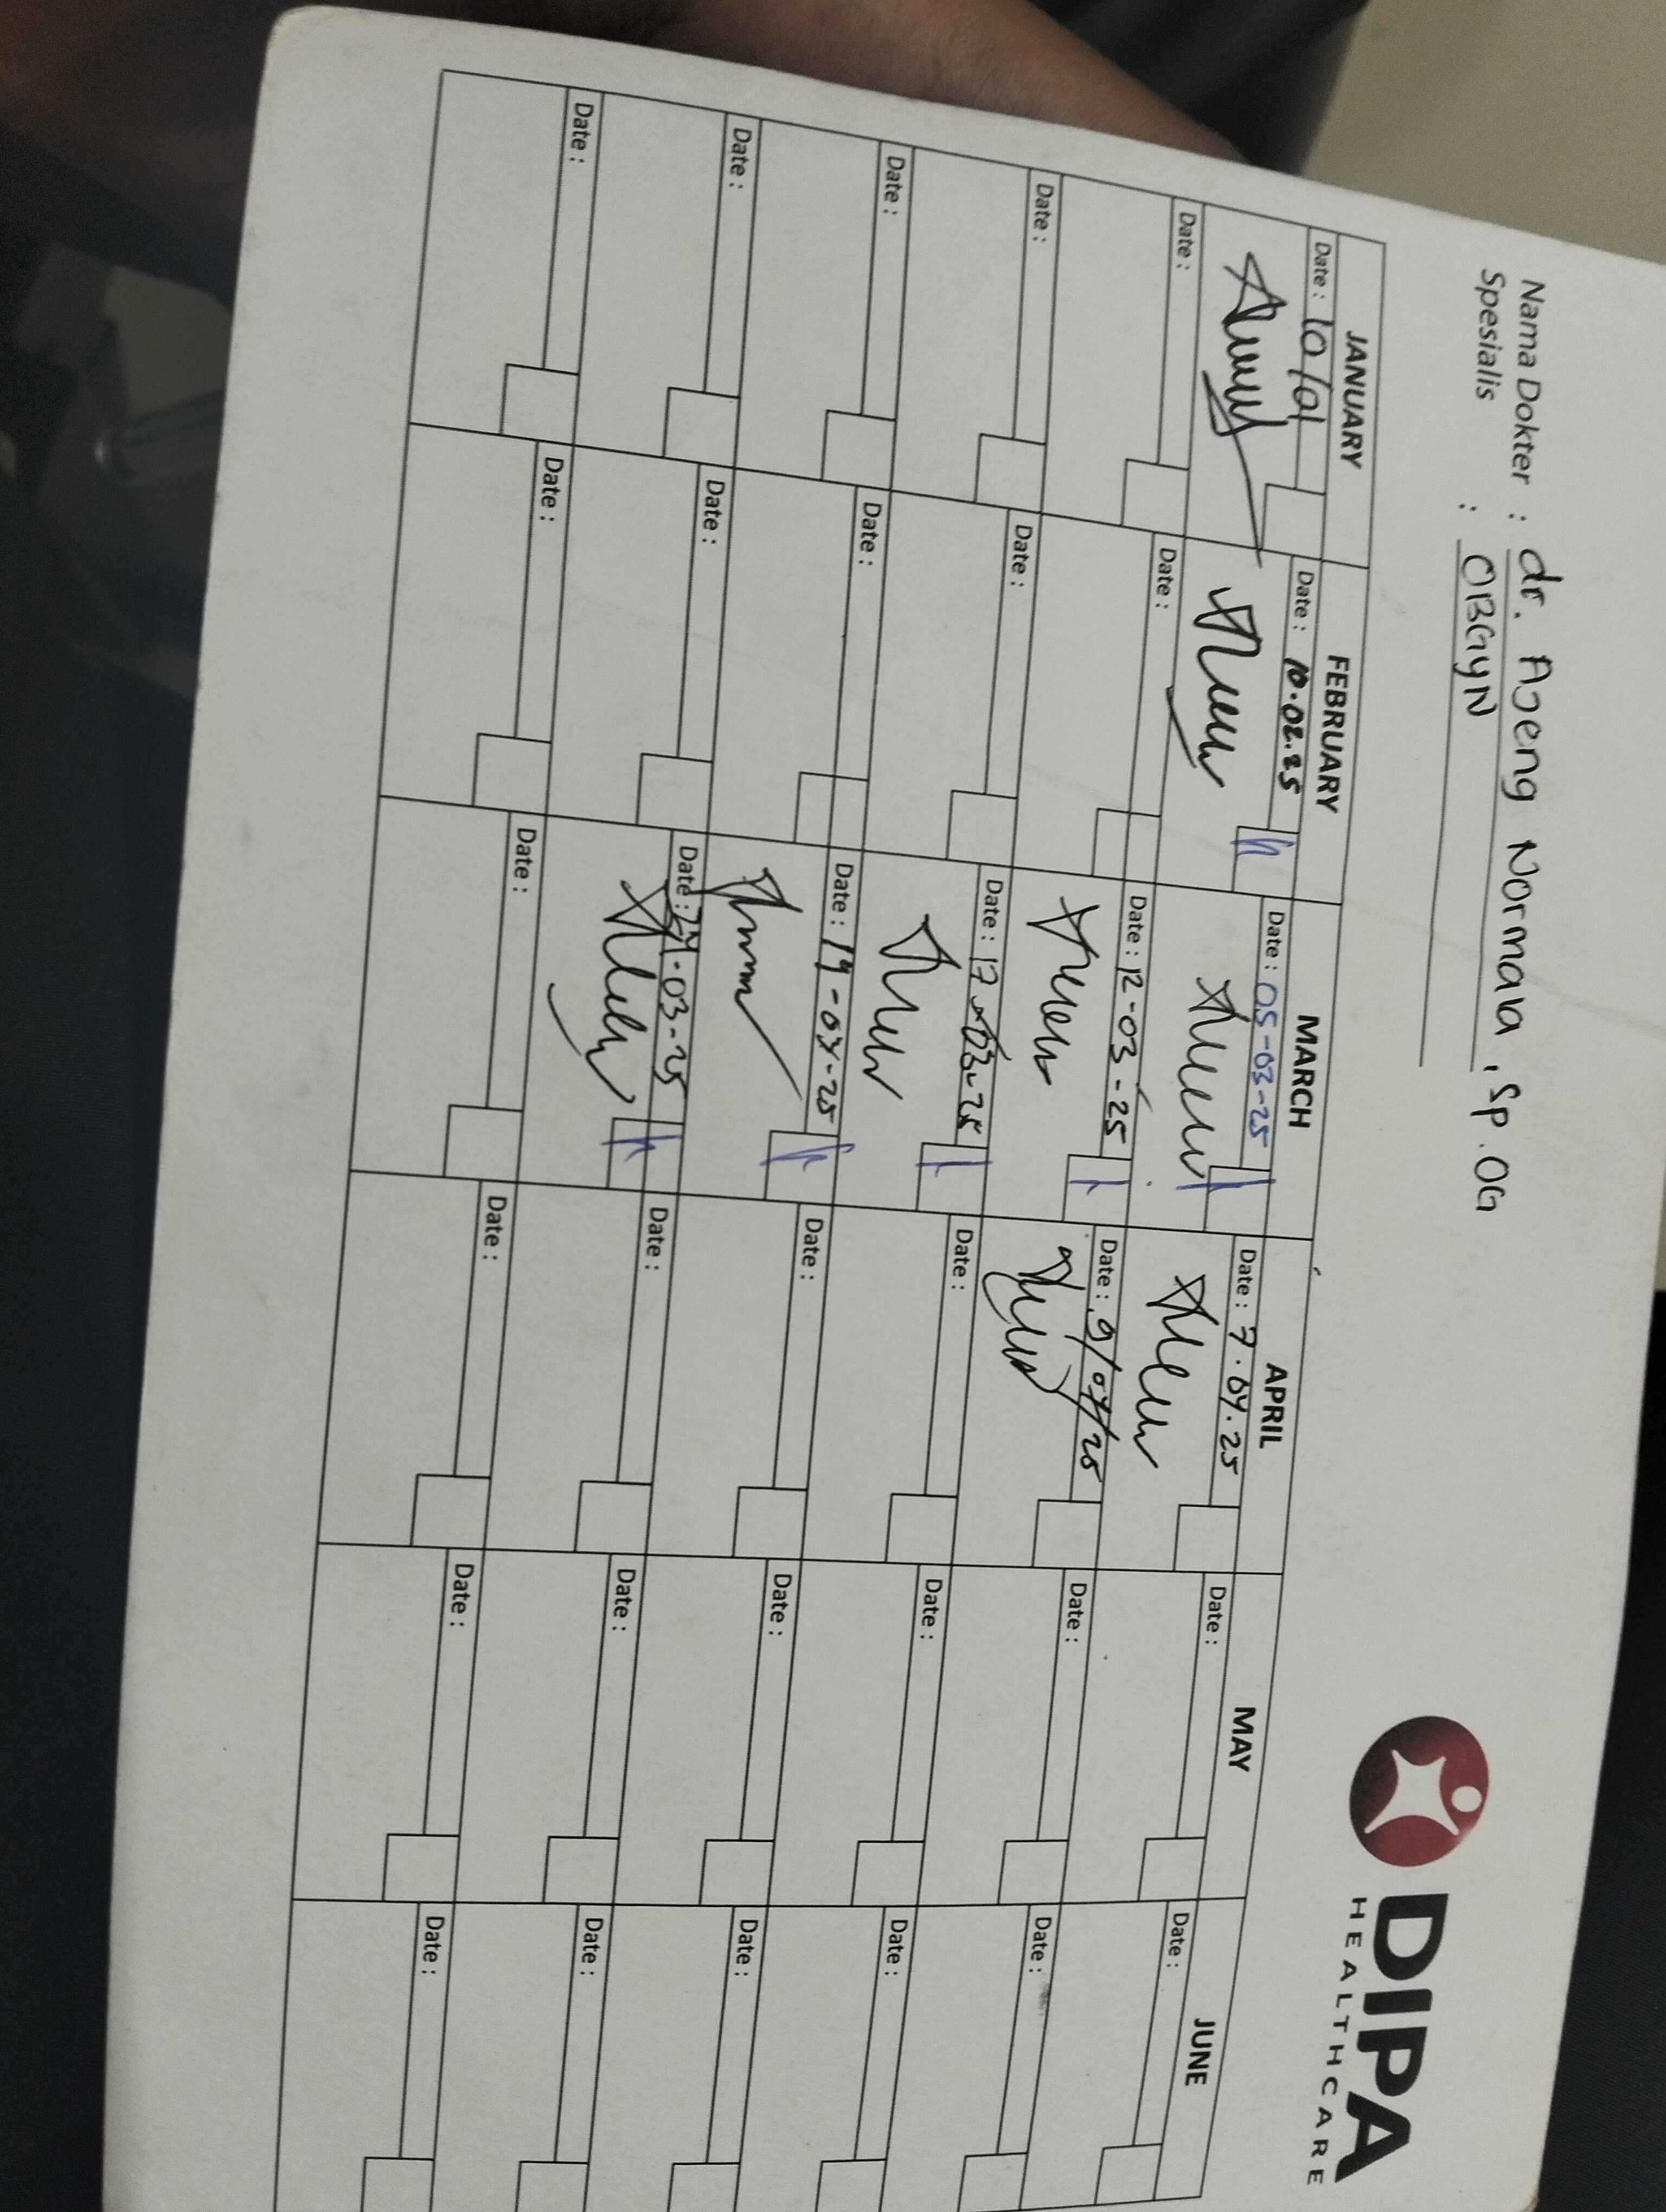 Nama Dokter : dr. Ajeng Normana, Sp.OG
Spesialis : OBGYN
DIPA
HEALTHCARE
JANUARY FEBRUARY MARCH APRIL MAY JUNE
Date : 10/01 Date : 10.02.25 Date : 05-03-25 Date : 7.04.25 Date : Date :
Date : Date : Date : 12-03-25 Date : 9/04/25 Date : Date :
Date : Date : Date : 17-03-25 Date : Date : Date :
Date : Date : Date : 19-03-25 Date : Date : Date :
Date : Date : Date : 24-03-25 Date : Date : Date :
Date : Date : Date : Date : Date : Date :